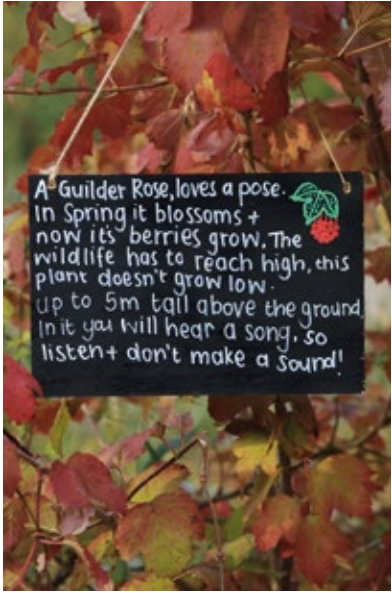 A Guilder Rose, loves a pose.
In Spring it blossoms +
now it's berries grow. The
wildlife has to reach high, this
plant doesn't grow low.
up to 5m tall above the ground.
In it you will hear a song, so
listen + don't make a sound!